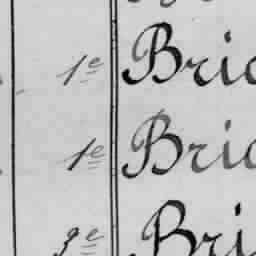 1e Bric
1e Bric
Bri